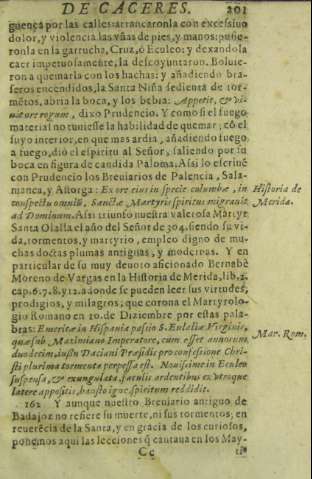 DE CACERES. 201
guença por las calles: arrancaronla con excessiuo
dolor, y violencia las vñas de pies, y manos: pusie-
ronla en la garrucha, Cruz, ò Eculeo: y dexandola
caer impetuosamẽte, la descoyuntaron. Boluie-
ron a quemarla con los hachas: y añadiendo bra-
seros encendidos, la Santa Niña sedienta de tor-
mẽtos, abria la boca, y los bebia: Appetit, & vi-
rogum, dixo Prudencio. Y como si el fuego
material no tuuiesse la habilidad de quemar; cõ el
suyo interior, en que mas ardia, añadiendo fuego
a fuego, diò el espiritu al Señor, saliendo por su
boca en figura de candida Paloma. Assi lo escriuẽ
con Prudencio los Breuiarios de Palencia, Sala-
manca, y Astorga: Ex ore eius in specie columbæ, in
conspectu omniũ, Sanctæ Martyris spiritus migrauit
ad Dominum. Assi triunfò nuestra valerosa Martyr
Santa Olalla el año del Señor de 304. siendo su vi-
da, tormentos, y martyrio, empleo digno de mu-
chas doctas plumas antiguas, y modernas. Y en
particular de su muy deuoto aficionado Bernabè
Moreno de Vargas en la Historia de Merida, lib. 2.
cap. 6. 7. 8. y 12. adonde se pueden leer sus virtudes,
prodigios, y milagros; que corona el Martyrolo-
gio Romano en 10. de Diziembre por estas pala-
bras: Emeritæ in Hispania passio S. Eulaliæ Virginis,
quæ sub Maximiano Imperatore, cum esset annorum
duodecim, iussu Daciani Præsidis pro confessione Chri-
sti plurima tormenta perpessa est. Nouissime in Eculeo
suspensa, & exungulata, faculis ardentibus ex vtroque
latere appositis, hausto igne, spiritum reddidit.
162 Y aunque nuestro Breuiario antiguo de
Badajoz no refiere su muerte, ni sus tormentos; en
reuerẽcia de la Santa, y en gracia de los curiosos,
ponemos aqui las lecciones q̃ cantaua en los May-
Cc ti-
Historia de
Merida.
Mar. Rom.